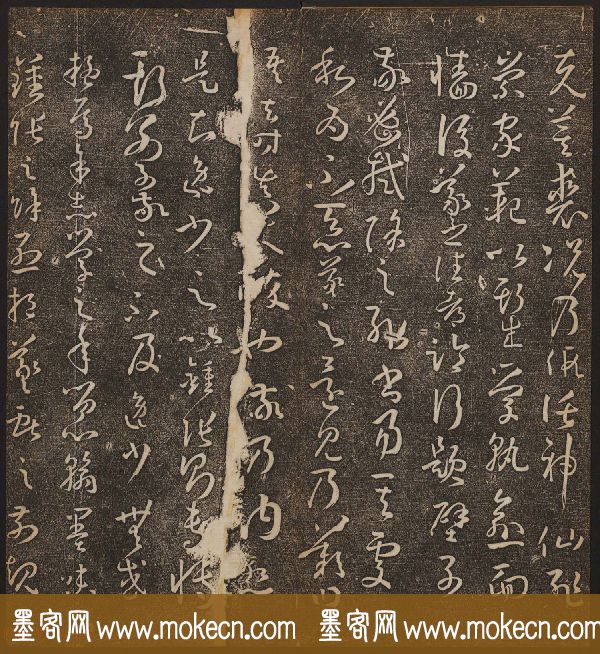 克箕裘况乃假託神仙恥
崇家範以斯成學孰愈面
牆後羲之往都臨行題壁子
敬密拭除之輒書易其處
私為不惡羲之還見乃歎曰
吾去時真大醉也敬乃內慙
是知逸少之比鍾張則專博
斯別子敬之不及逸少無或
疑焉余志學之年留心翰墨味
鍾張之餘烈挹羲獻之前規
墨客网 www.mokecn.com 墨客网 www.mokecn.com